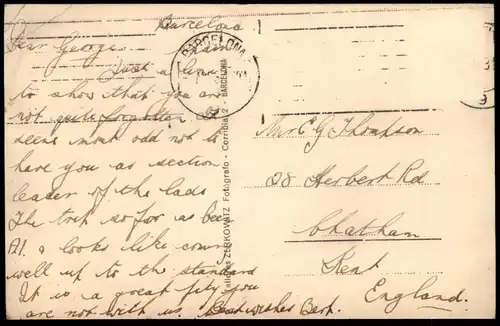 Barcelona
Dear George,
Just a line
to show that you are
not quite forgotten. It
seems most odd not to
have you as section
leader of the lads
The trip so far as been
A1. & looks like coming
well up to the standard
It is a great pity you
are not with us. Best wishes Bert.
BARCELONA
BARCELONA
Talleres ZERKOWITZ Fotógrafo - Cerribia, 2 - BARCELONA
Mr E G Thompson
28 Herbert Rd
Chatham
Kent
England.